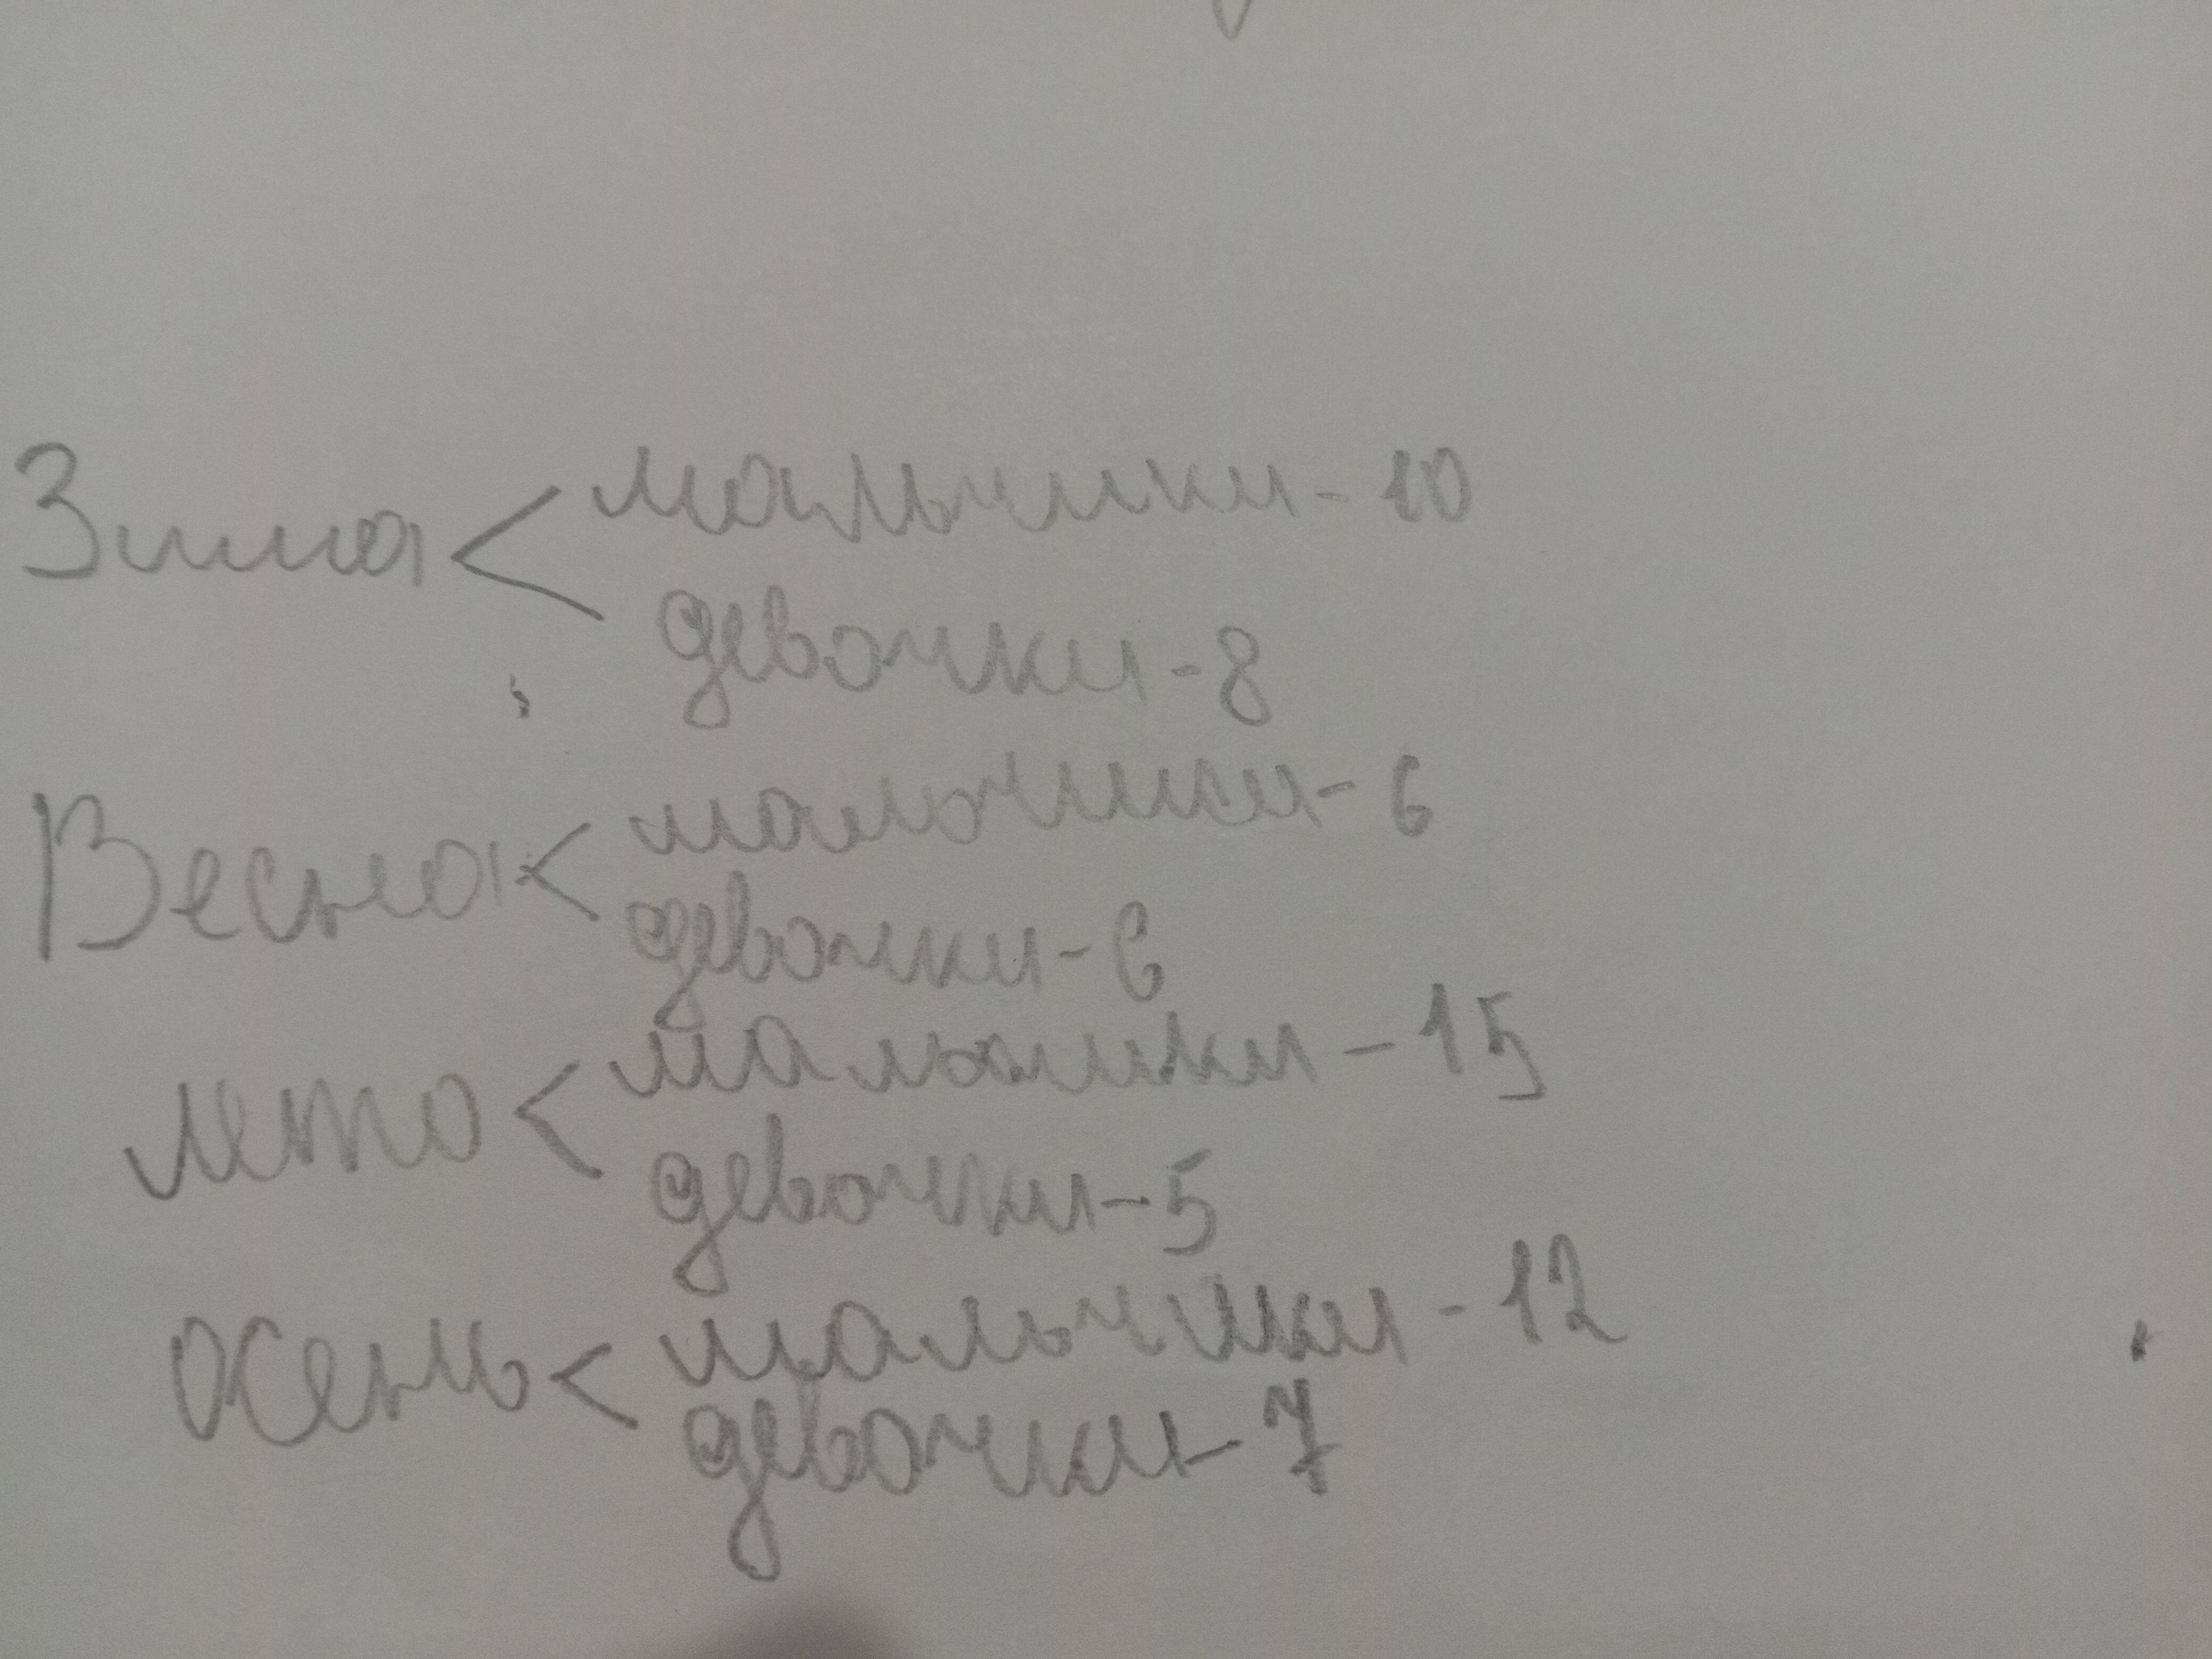 Зима < мальчики - 10
девочки - 8
Весна < мальчики - 6
девочки - 6
лето < мальчики - 15
девочки - 5
осень < мальчики - 12
девочки - 7